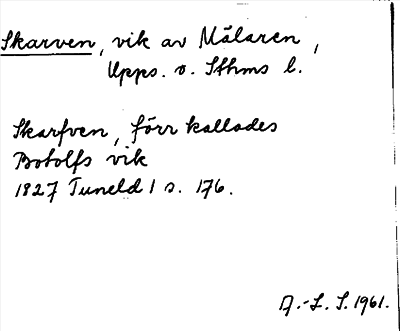 Skarven, vik av Mälaren,
Upps. o. Sthms l.
Skarfven, förr kallades
Botolfs vik
1827 Tuneld 1 s. 176.
A.-L. S. 1961.